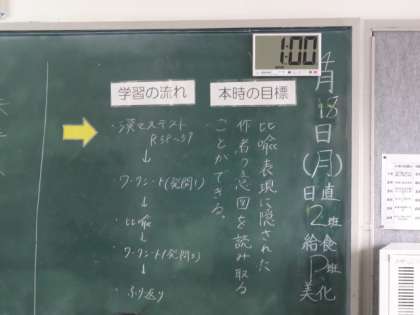 1:00
4月18日(月)
日直 2班
給食 P班
美化
本時の目標
比喩表現に隠された
作者の意図を読み取る
ことができる。
学習の流れ
・漢字テスト
P.38~39
↓
・ワークシート(発問1)
↓
・比喩
↓
・ワークシート(発問2)
↓
・ふり返り